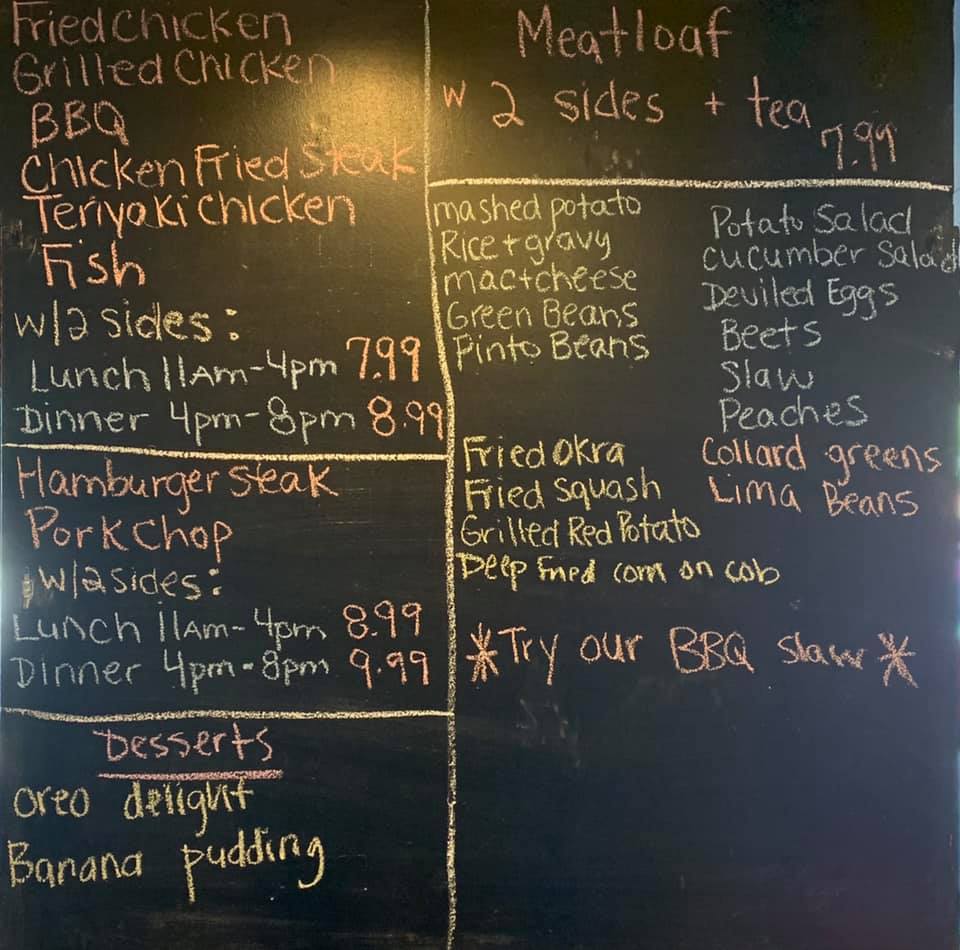 Fried Chicken
Grilled Chicken
BBQ
Chicken Fried Steak
Teriyaki Chicken
Fish
w/2 sides:
Lunch 11Am-4pm 7.99
Dinner 4pm-8pm 8.99
Hamburger Steak
Pork Chop
w/2 sides:
Lunch 11Am-4pm 8.99
Dinner 4pm-8pm 9.99
Desserts
oreo delight
Banana pudding
Meatloaf
w 2 sides + tea
7.99
mashed potato
Rice + gravy
mac+cheese
Green Beans
Pinto Beans
Fried Okra
Fried Squash
Grilled Red Potato
Deep Fried corn on cob
Potato Salad
Cucumber Salad
Deviled Eggs
Beets
Slaw
Peaches
Collard greens
Lima Beans
*Try our BBQ slaw*